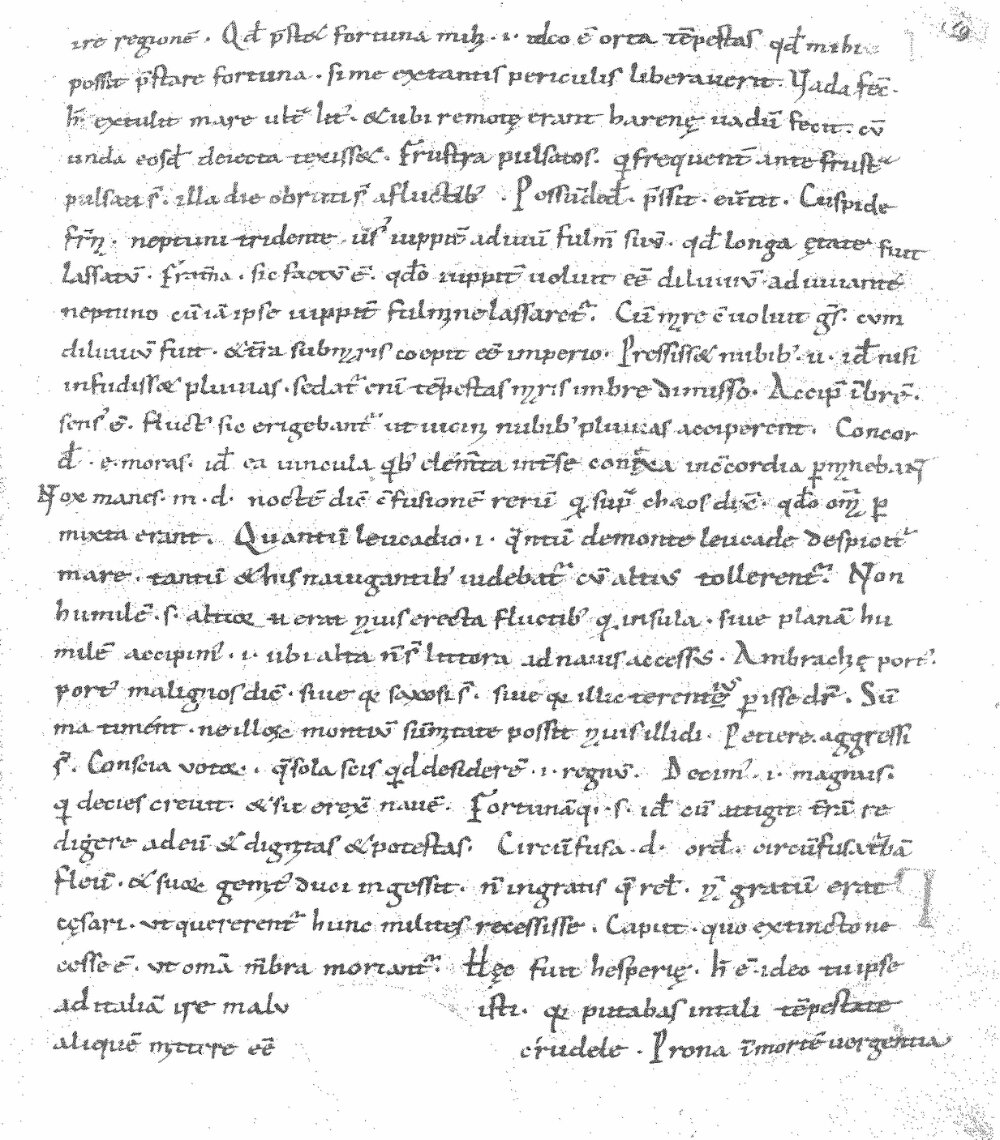 ire regionē. Qđ p̄stet fortuna mihi. i. ideo ē orta tēpestas qđ mihi
possit p̄stare fortuna. si me extantis periculis liberauerit. Vada fec̄.
h̄ extulit mare ult̄ lit'. & ubi remotę erant harenę uadū fecit. cū
unda eosđ deiecta texisset. Frustra pulsatos. q frequent̄ ante frust
pulsati s̄. illa die obruti s̄ a fluctib'. Possūđeđ. p̄ssit. Cuspide
neptuni tridente. iuppit̄ adiuu fulm̄ suū. qđ longa ętate fuit
lassatū. Fratn̄a. sic factū ē. qđo iuppit̄ uoluit eē diluuiū adiuuante
neptuno cū iā ipse iuppit̄ fulmine lassaret'. Cū uoluit cum
diluuiū fuit. & t̄ra sub coepit eē imperio. Pressisset nubib'. u. iđ nisi
infudisset pluuias. sedat' eni tēpestas imbre dimisso. Accip̄ ībrē.
sens' ē. fluct' sic erigebant' ut uicini nubib' pluuias acciperent. Concor
đ. e. moras. iđ ea uincula qb' elem̄ta int̄ se conexa in ccordia p̄manebant
Nox manes. m. d. noctē diē c̄fusionē rerū q sup̄ chaos diē. qđo om̄ia p
mixta erant. Quantū leucadio. i. q̄ntū de monte leucade despicit'
mare. tantū & his nauigantib' uidebat' cū altius tollerent'. Non
humilē. s. altior u erat nauis erecta fluctib' q insula. siue planā hu
milē accipim'. i. ubi alta n̄ s̄ littora ad nauis accessus. Ambrachę port'.
port' malignos diē. siue quia saxosi s̄. siue quia illic perisse dr̄. Sū
ma timent. ne illoꝝ montiū sūmitate possit nauis illidi. Petiere. aggressi
s̄. Conscia votoꝝ. q̄ sola scis qđ desiderē. i. regnū. Decim'. i. magnus.
q decies creuit. & sic erex̄ nauē. Fortunāq;. s. iđ cū attigit t̄rā re
digere ad eū & dignitas & potestas. Circūfusa. d. ord̄. circūfusa t̄bā
fleuī. & suoꝝ gemit' duci ingessit. n̄ ingratis q̄rel̄. gratū erat
cęsari. ut quererent' hunc milites recessisse. Caput. quo extincto ne
cesse ē. ut om̄a m̄bra moriant'. Hęc fuit hesperię. h̄ ē. ideo tu ipse
ad italiā ire malu isti. quia putabas in tali tēpestate
aliquē mittere eē crudele. Prona ī mortē uergentia